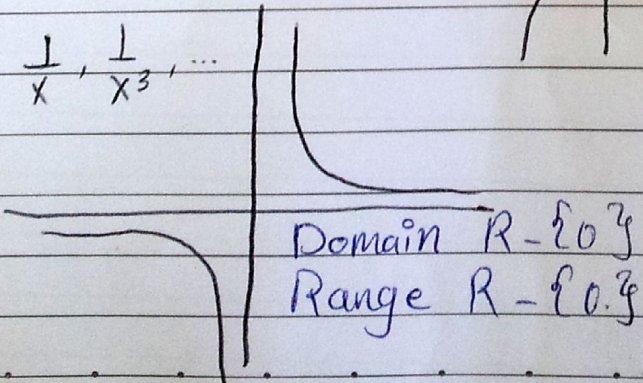 1/x , 1/x³ , ...
Domain R - {0}
Range R - {0.}